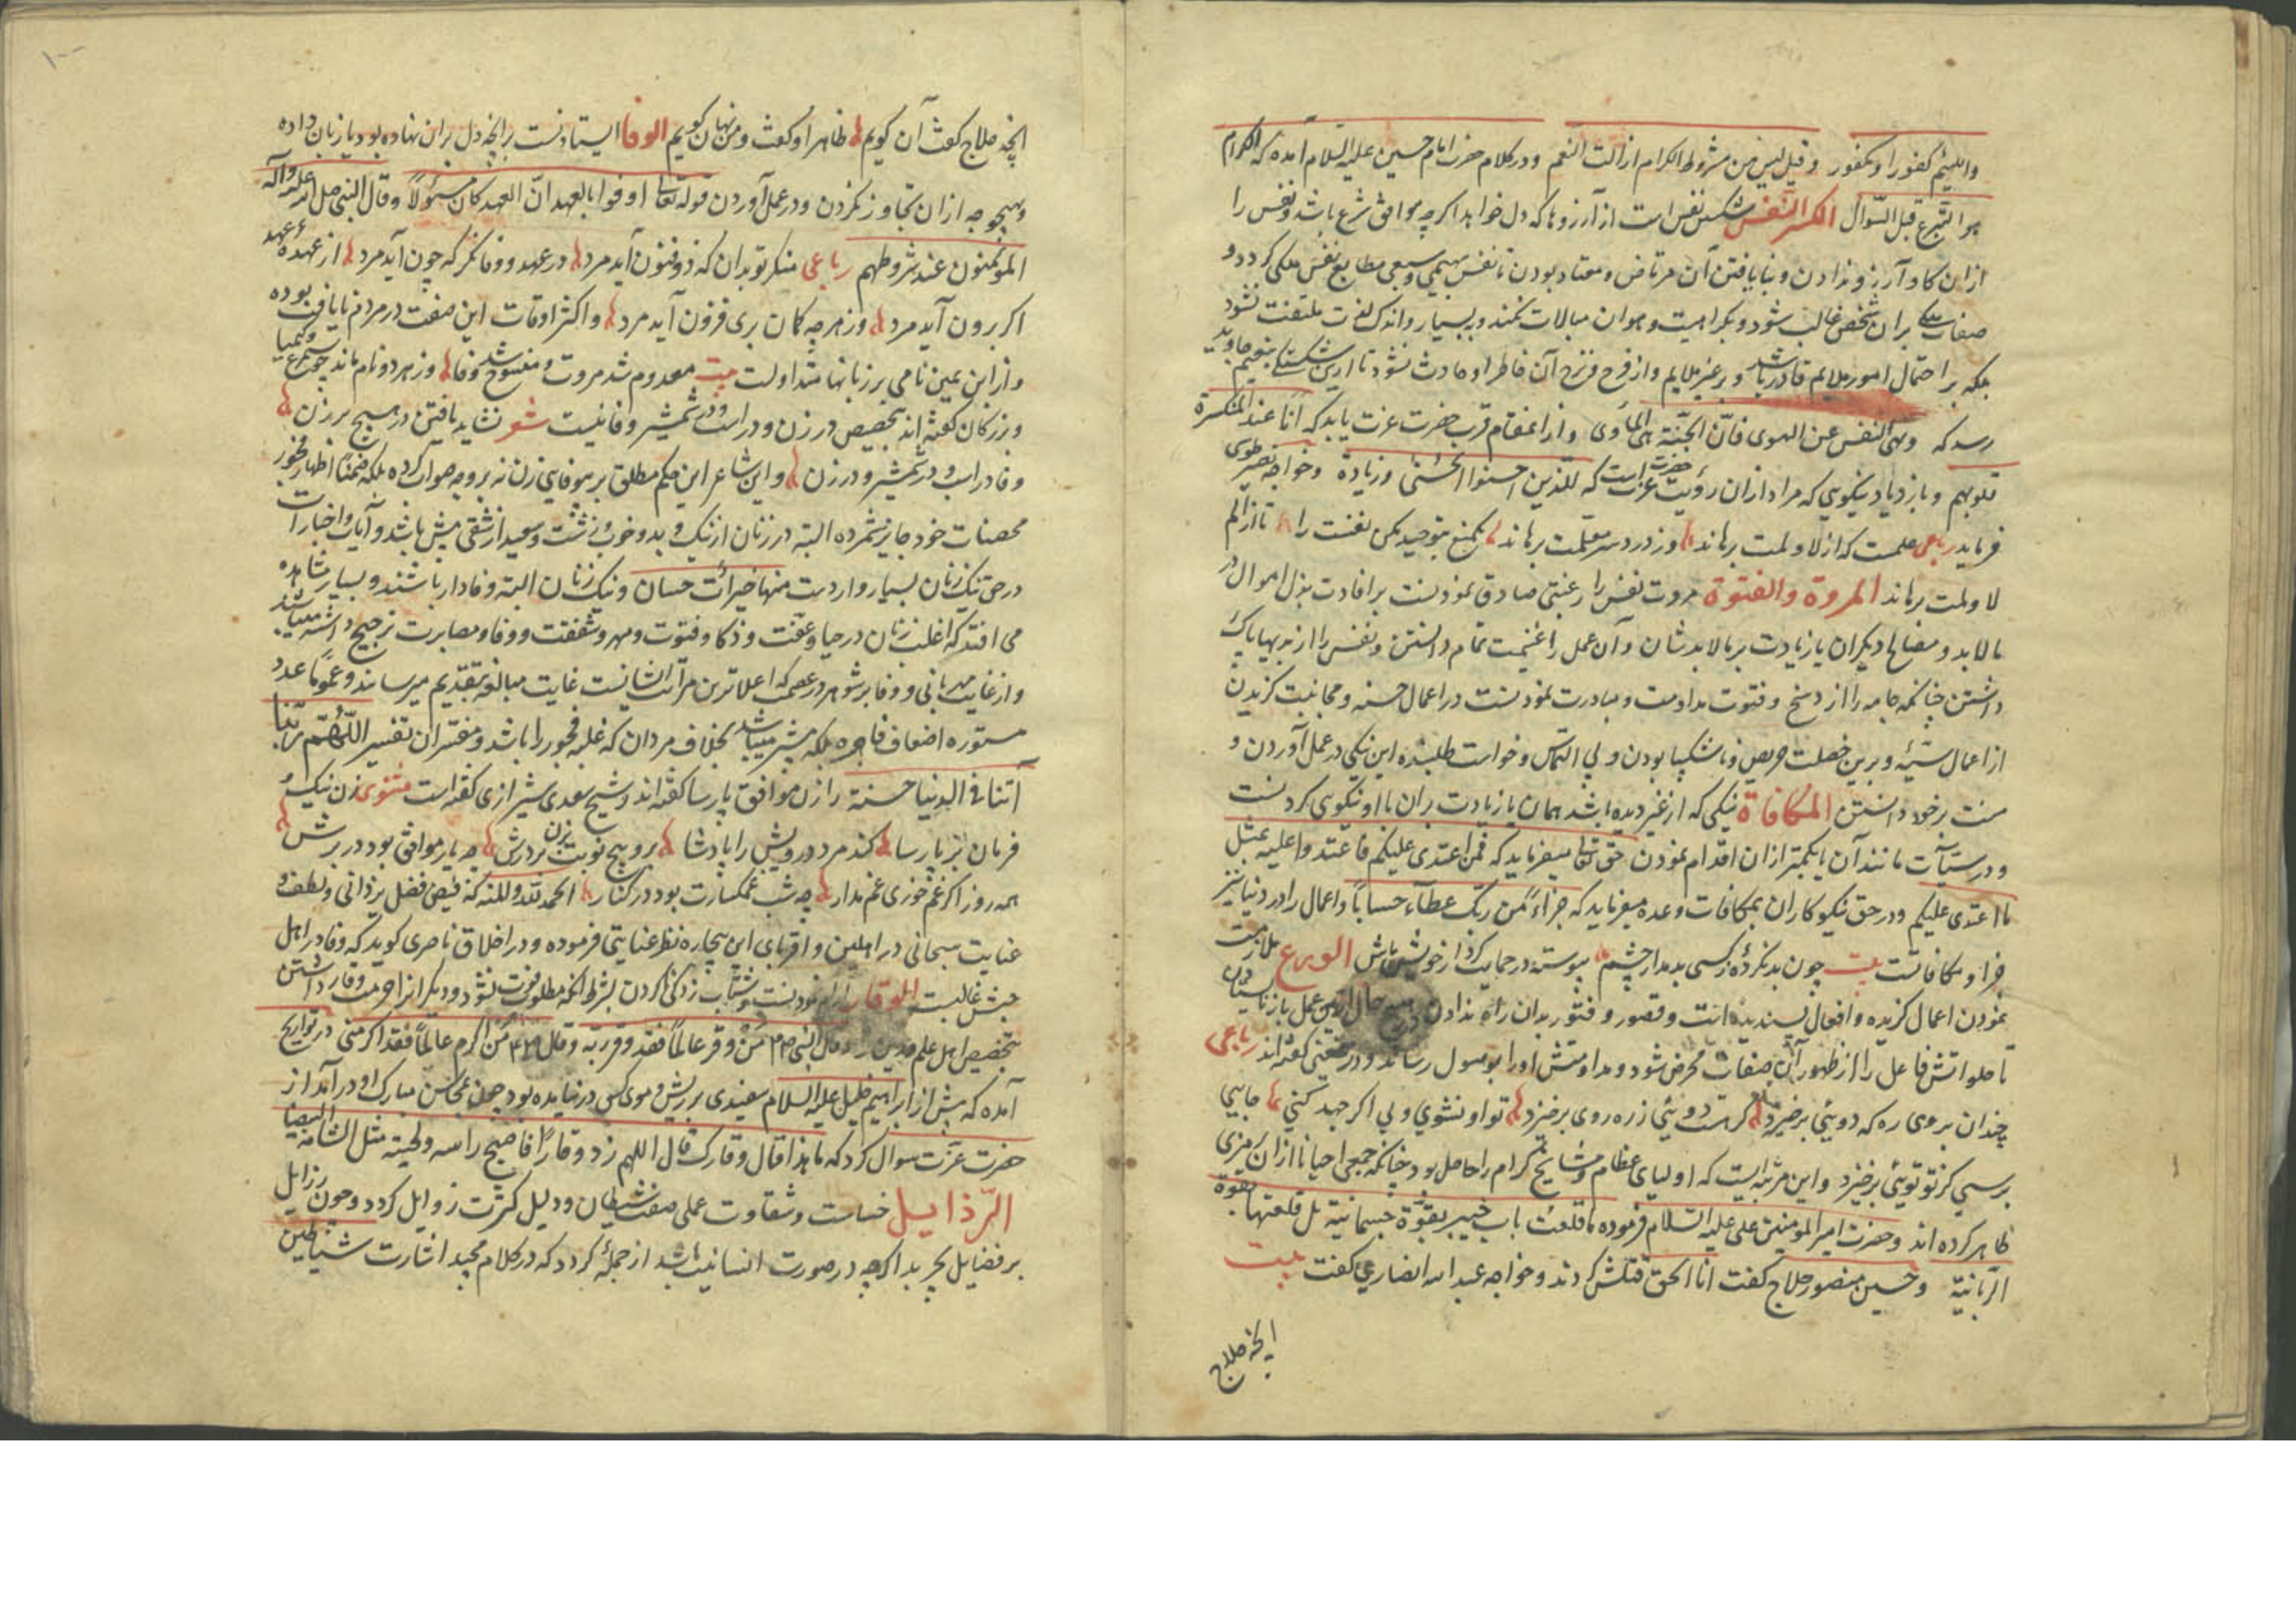 واللئیم کفورا و مکفور و قیل لیس من شروط الکرام ازالت النعم و در کلام حضرت امام حسین علیه السلام آمده که الکرام
هو التبرع قبل السؤال الکسر النفس شکستن نفس است از آرزوها که دل خواهد اگرچه موافق شرع باشد و نفس را
ازان کام و آرزو ندادن و بنایافتن آن مرتاض و معتاد بودن تا نفس بهیمی و سبعی مطابع نفس ملکی گردد و
صفات ملکی بران شخص غالب شود و بکرامت و هوان مبالات نکند و ببسیار و اندک ملتفت نشود
بلکه بر احتمال امور ملایم قادر باشد و بر غیر ملایم و از فرح و ترح آن خاطر او حادث نشود تا ازین شکستگی بنعیم جاوید
رسد که ونهی النفس عن الهوی فان الجنة هی المأوی و ازانمقام قرب حضرت عزت یابد که انا عند المنکسرة
قلوبهم و بازدیاد نیکویی که مراد ازان رؤیت حضرت عزت است که للذین احسنوا الحسنی و زیادة و خواجه نصیر طوسی
فرماید رباعی علمت که از لا و لمت برهاند وز درد سر معلمت برهاند بتوحید یکی نفست را تا از الم
لا و لمت برهاند المروة والفتوة مروت نفس را رغبتی صادق نمودنست بر افادت بذل اموال در
مالابد و مصالح دیگران با زیادت بر مالابد شان و آن عمل را غنیمت تمام دانستن و نفس را ازبدیها پاک
داشتن چنانکه جامه را از وسخ و فتوت مداومت و مبادرت نمودنست در اعمال حسنه و مجانبت گزیدن
از اعمال سیئه و برین خصلت حریص و ناشکیبا بودن و بی التماس و خواست طلبنده این نیکی در عمل آوردن و
منت بر خود دانستن المکافاة نیکی که از غیر دیده باشد همان با زیادت بران با او نیکویی کردنست
و در سیئات مانند آن یا کمتر ازان اقدام نمودن حق تعالی میفرماید که فمن اعتدی علیکم فاعتدوا علیه بمثل
ما اعتدی علیکم و در حق نیکوکاران بمکافات وعده میفرماید که جزاء من ربک عطاء حسابا و اعمال را در دنیا نیز
جزا و مکافاتست بیت چون بد کردهٔ ز کسی بد مدار چشم پیوسته در حمایت کردار خویش باش الورع ملازمت
نمودن اعمال گزیده و افعال پسندیده است و قصور و فتور بدان راه ندادن عمل بازنایستادن
تا حلواتش فاعل را از ظهور آن صفات محرض شود و مداومتش او را بوصول رساند و درین معنی گفته اند رباعی
چندان برو این ره که دوئی برخیزد گر هست دوئی ز رهروی برخیزد تو او نشوی ولی اگر جهد کنی جایی
برسی کز تو توئی برخیزد و این مرتبه ایست که اولیای عظام و مشایخ کرام را حاصل بود چنانکه جمعی احیانا ازان رمزی
ظاهر کرده اند و حضرت امیر المومنین علی علیه السلام فرموده ما قلعت باب خیبر بقوة جسمانیة بل قلعتها بقوة
الربانیة و حسین منصور حلاج گفت انا الحق قتلش کردند و خواجه عبد الله انصاری گفت بیت
انچه حلاج
انچه حلاج گفت آن گویم ظاهر او گفت و من نهان گویم الوفا ایستادنست برانچه دل بران نهاده بود یا زبان داده
و بهیچوجه ازان تجاوز نکردن و در عمل آوردن قوله تعالی اوفوا بالعهد ان العهد کان مسؤلا و قال النبی صلی الله علیه وآله
المؤمنون عند شروطهم رباعی منکر تو بدان که ذو فنون آید مرد در عهد و وفا نگر که چون آید مرد از عهدهٔ عهد
اگر برون آید مرد وز هرچه گمان بری فزون آید مرد و اکثر اوقات این صفت در مردم نایافت بوده
و از ابن یمین نامی بر زبانها متداولست بیت معدوم شد مروت و منسوخ شد وفا وز هر دو نام ماند چو سیمرغ و کیمیا
و بزرگان گفته اند بتخصیص در زن و در اسب و در شمشیر وفا نیست شعر نشاید یافتن در هیچ برزن
وفا در اسب و در شمشیر و در زن و این شاعر این حکم مطلق بر بیوفایی زن نه بر وجه صواب کرده بلکه ضمنا اظهار فخور
محصنات خود جایز شمرده البته در زنان از نیک و بد و خوب و زشت و سعید از شقی بیش باشد و آیات و اخبارات
در حق نیک زنان بسیار واردست منها خیرات حسان و نیک زنان البته وفادار باشند و بسیار مشاهده
می افتد که اغلب زنان در حیا و عفت و ذکا و فتوت و مهر و شفقت و وفا و مصابرت ترجیح داشته میباشند
و از غایت مهربانی و وفا بر شوهر در عصمت که اعلاترین مراتب انسانیست غایت مبالغه بتقدیم میرسانند و عموما عدد
مستوره اضعاف فاجره بلکه بیشتر میباشد بخلاف مردان که غلبه فجور را باشد و مفسران تفسیر اللهم ربنا
آتنا فی الدنیا حسنة را زن موافق پارسا گفته اند و شیخ سعدی شیرازی گفته است مثنوی زن نیک
فرمان بر پارسا کند مرد درویش را پادشا برو پنج نوبت بزن بر درش چه یار موافق بود در برش
همه روز اگر غم خوری غم مدار چه شب غمگسارت بود در کنار الحمد لله والمنه که فیض فضل یزدانی و لطف و
عنایت سبحانی در اهلین و اقربای این بیچاره نظر عنایتی فرموده و در اخلاق ناصری گوید که وفا در اهل
حبش غالبست الوقار آرام نمودنست و شتاب زدگی ناکردن بشرط انکه مطلوب فوت نشود و دیگرانرا حرمت و وقار داشتن
بتخصیص اهل علم و دین را و قال النبی صم من وقر عالما فقد وقر ربه و قال ص من اکرم عالما فقد اکرمنی در تواریخ
آمده که پیش از ابراهیم خلیل علیه السلام سفیدی بر ریش و موی کس درنیامده بود چون محاسن مبارک او درآمد از
حضرت عزت سوال کرد که ما هذا قال وقارک قال اللهم زد وقارا فاصبح راسه و لحیته مثل الثغامة البیضا
الرذایل خساست و شقاوت عملی صفت شیطان و دلیل کثرت زوایل گردد و چون رزایل
بر فضایل بچربد اگرچه در صورت انسانیت باشد از جمله گردد که در کلام مجید اشارت شیاطین